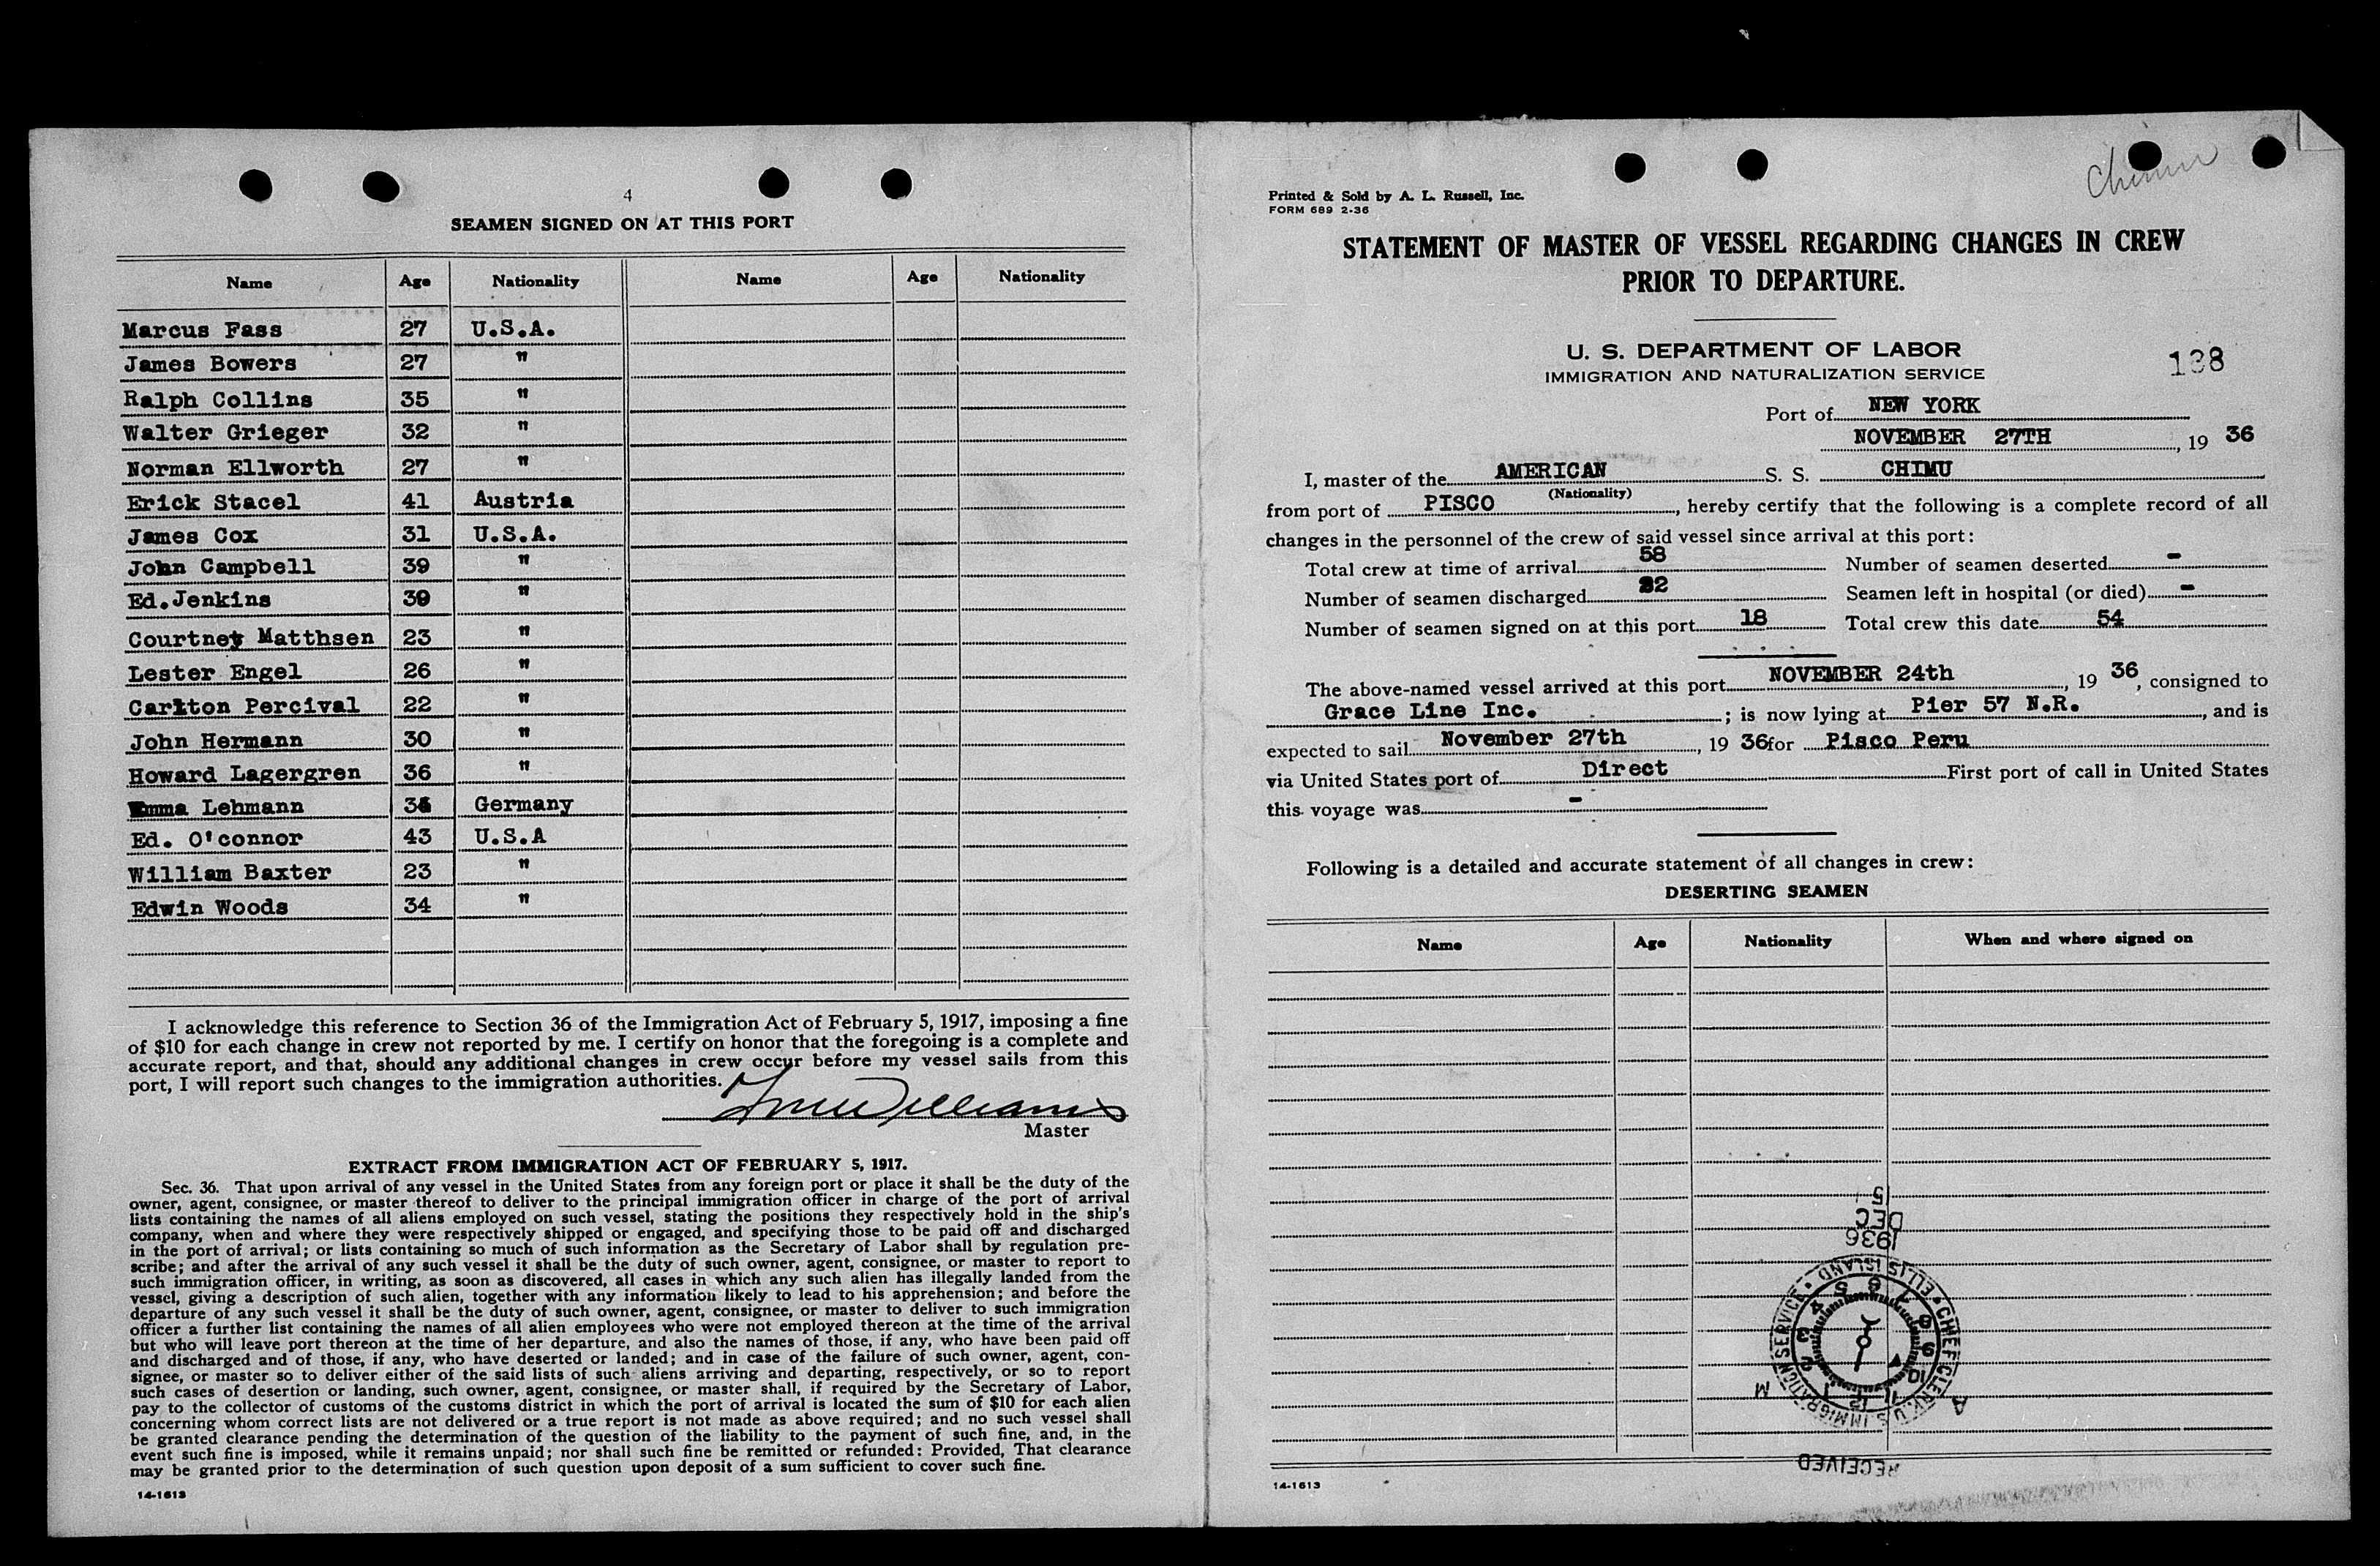 4
SEAMEN SIGNED ON AT THIS PORT
Name Age Nationality Name Age Nationality
Marcus Fass 27 U.S.A.
James Bowers 27 "
Ralph Collins 35 "
Walter Grieger 32 "
Norman Ellworth 27 "
Erick Stacel 41 Austria
James Cox 31 U.S.A.
John Campbell 39 "
Ed. Jenkins 39 "
Courtney Matthsen 23 "
Lester Engel 26 "
Carlton Percival 22 "
John Hermann 30 "
Howard Lagergren 36 "
Emma Lehmann Germany
Ed. O'connor 43 U.S.A
William Baxter 23 "
Edwin Woods 34 "
I acknowledge this reference to Section 36 of the Immigration Act of February 5, 1917, imposing a fine
of $10 for each change in crew not reported by me. I certify on honor that the foregoing is a complete and
accurate report, and that, should any additional changes in crew occur before my vessel sails from this
port, I will report such changes to the immigration authorities.
Williams
Master
EXTRACT FROM IMMIGRATION ACT OF FEBRUARY 5, 1917.
Sec. 36. That upon arrival of any vessel in the United States from any foreign port or place it shall be the duty of the
owner, agent, consignee, or master thereof to deliver to the principal immigration officer in charge of the port of arrival
lists containing the names of all aliens employed on such vessel, stating the positions they respectively hold in the ship's
company, when and where they were respectively shipped or engaged, and specifying those to be paid off and discharged
in the port of arrival; or lists containing so much of such information as the Secretary of Labor shall by regulation pre-
scribe; and after the arrival of any such vessel it shall be the duty of such owner, agent, consignee, or master to report to
such immigration officer, in writing, as soon as discovered, all cases in which any such alien has illegally landed from the
vessel, giving a description of such alien, together with any information likely to lead to his apprehension; and before the
departure of any such vessel it shall be the duty of such owner, agent, consignee, or master to deliver to such immigration
officer a further list containing the names of all alien employees who were not employed thereon at the time of the arrival
but who will leave port thereon at the time of her departure, and also the names of those, if any, who have been paid off
and discharged and of those, if any, who have deserted or landed; and in case of the failure of such owner, agent, con-
signee, or master so to deliver either of the said lists of such aliens arriving and departing, respectively, or so to report
such cases of desertion or landing, such owner, agent, consignee, or master shall, if required by the Secretary of Labor,
pay to the collector of customs of the customs district in which the port of arrival is located the sum of $10 for each alien
concerning whom correct lists are not delivered or a true report is not made as above required; and no such vessel shall
be granted clearance pending the determination of the question of the liability to the payment of such fine, and, in the
event such fine is imposed, while it remains unpaid; nor shall such fine be remitted or refunded: Provided, That clearance
may be granted prior to the determination of such question upon deposit of a sum sufficient to cover such fine.
14-1613
Chimu
Printed & Sold by A. L. Russell, Inc.
FORM 689 2-36
STATEMENT OF MASTER OF VESSEL REGARDING CHANGES IN CREW
PRIOR TO DEPARTURE.
U. S. DEPARTMENT OF LABOR
IMMIGRATION AND NATURALIZATION SERVICE
138
Port of NEW YORK
NOVEMBER 27TH, 19 36
I, master of the AMERICAN S. S. CHIMU
(Nationality)
from port of PISCO, hereby certify that the following is a complete record of all
changes in the personnel of the crew of said vessel since arrival at this port:
Total crew at time of arrival 58 Number of seamen deserted -
Number of seamen discharged 22 Seamen left in hospital (or died) -
Number of seamen signed on at this port 18 Total crew this date 54
The above-named vessel arrived at this port NOVEMBER 24th, 19 36, consigned to
Grace Line Inc. ; is now lying at Pier 57 N.R., and is
expected to sail November 27th, 19 36 for Pisco Peru
via United States port of Direct First port of call in United States
this voyage was -
Following is a detailed and accurate statement of all changes in crew:
DESERTING SEAMEN
Name Age Nationality When and where signed on
RECEIVED
CHIEF CLERK U.S. IMMIGRATION SERVICE • ELLIS ISLAND •
A M
12 1 2 3 4 5 6 7 8 9 10 11
1936
DEC
15
14-1613